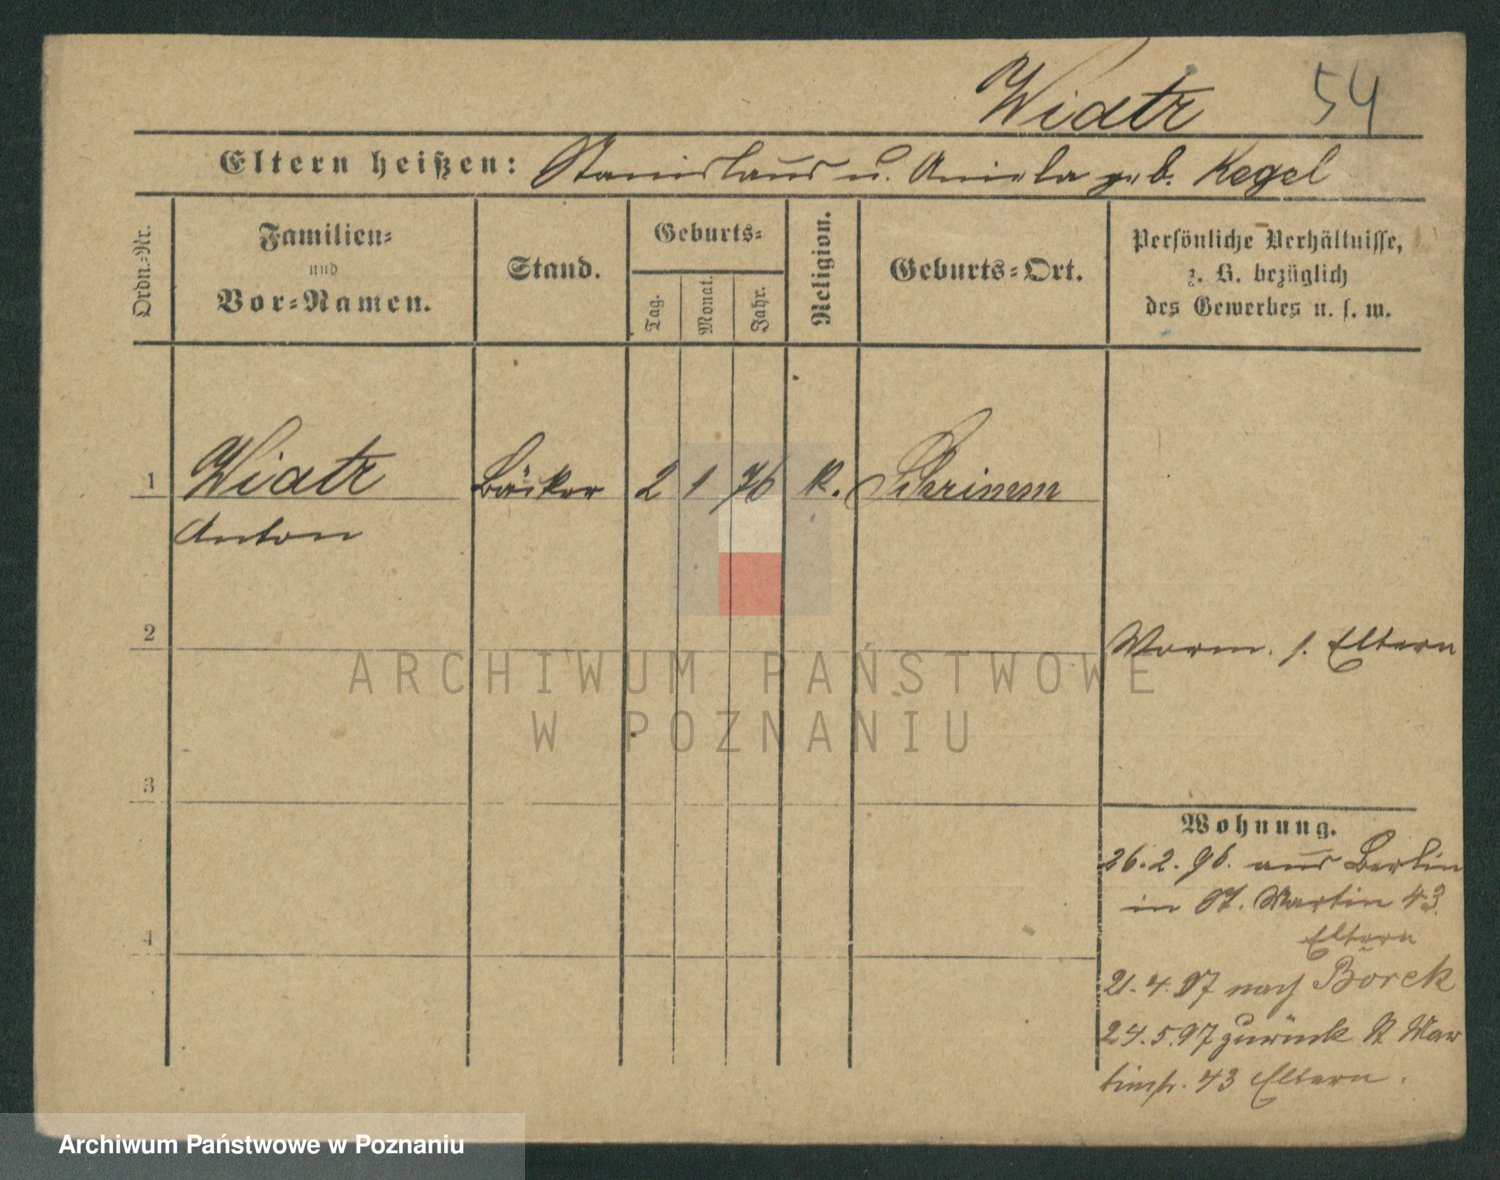 Wiatr 54
Eltern heißen: Stanislaus u. Aniela geb. Kegel
Ordn.-Nr.
Familien-
und
Vor-Namen.
Stand.
Geburts-
Tag.
Monat.
Jahr.
Religion.
Geburts-Ort.
Persönliche Verhältnisse,
z. B. bezüglich
des Gewerbes u. s. w.
1 Wiatr Bäcker 2 1 76 K. Schrimm
Anton
2
Vorm. s. Eltern
ARCHIWUM PAŃSTWOWE
W POZNANIU
3
Wohnung.
26.2.96. aus Berlin
in St. Martin 43
Eltern
4
21.4.97 nach Borek
24.5.97 zurück St Mar
tinstr. 43 Eltern.
Archiwum Państwowe w Poznaniu